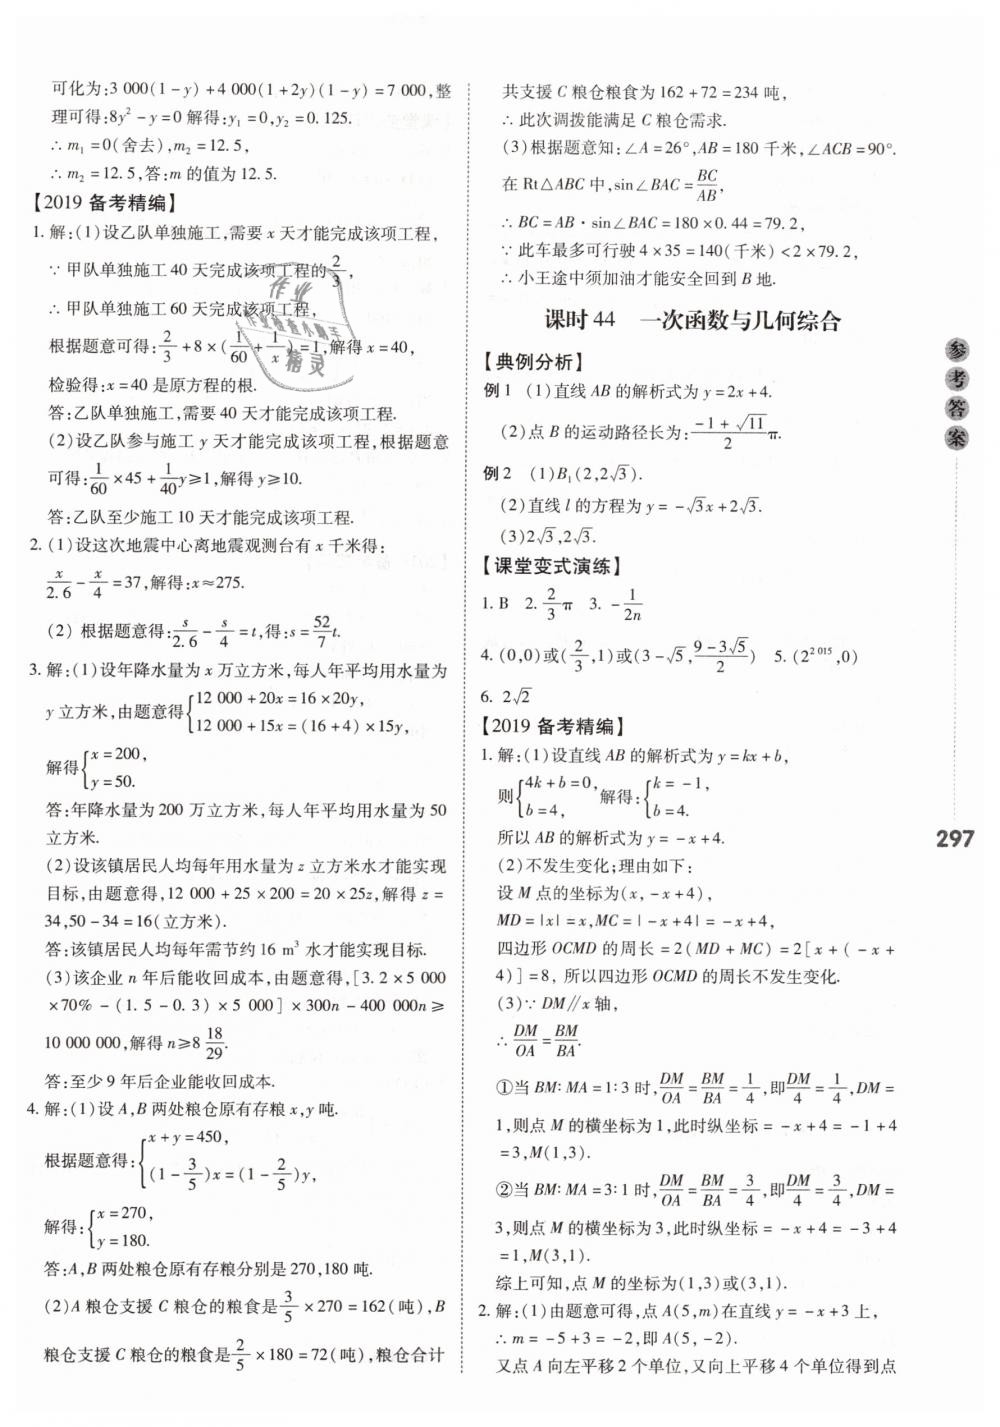 可化为:3 000(1-y)+4 000(1+2y)(1-y)=7 000,整
理可得:8y²-y=0 解得:y₁=0,y₂=0.125.
∴ m₁=0(舍去),m₂=12.5,
∴ m₂=12.5,答:m 的值为 12.5.
【2019 备考精编】
1. 解:(1)设乙队单独施工,需要 x 天才能完成该项工程,
∵ 甲队单独施工 40 天完成该项工程的 2/3,
∴ 甲队单独施工 60 天完成该项工程,
根据题意可得:2/3+8×(1/60+1/x)=1,解得 x=40,
检验得:x=40 是原方程的根.
答:乙队单独施工,需要 40 天才能完成该项工程.
(2)设乙队参与施工 y 天才能完成该项工程,根据题意
可得:1/60×45+1/40y≥1,解得 y≥10.
答:乙队至少施工 10 天才能完成该项工程.
2. (1)设这次地震中心离地震观测台有 x 千米得:
x/2.6-x/4=37,解得:x≈275.
(2) 根据题意得:s/2.6-s/4=t,得:s=52/7t.
3. 解:(1)设年降水量为 x 万立方米,每人年平均用水量为
y 立方米,由题意得{12 000+20x=16×20y,
12 000+15x=(16+4)×15y,
解得{x=200,
y=50.
答:年降水量为 200 万立方米,每人年平均用水量为 50
立方米.
(2)设该镇居民人均每年用水量为 z 立方米水才能实现
目标,由题意得,12 000+25×200=20×25z,解得 z=
34,50-34=16(立方米).
答:该镇居民人均每年需节约 16 m³ 水才能实现目标.
(3)该企业 n 年后能收回成本,由题意得,[3.2×5 000
×70%-(1.5-0.3)×5 000]×300n-400 000n≥
10 000 000,解得 n≥8 18/29.
答:至少 9 年后企业能收回成本.
4. 解:(1)设 A,B 两处粮仓原有存粮 x,y 吨.
根据题意得:{x+y=450,
(1-3/5)x=(1-2/5)y,
解得:{x=270,
y=180.
答:A,B 两处粮仓原有存粮分别是 270,180 吨.
(2)A 粮仓支援 C 粮仓的粮食是 3/5×270=162(吨),B
粮仓支援 C 粮仓的粮食是 2/5×180=72(吨),粮仓合计
共支援 C 粮仓粮食为 162+72=234 吨,
∴ 此次调拨能满足 C 粮仓需求.
(3)根据题意知:∠A=26°,AB=180 千米,∠ACB=90°.
在 Rt△ABC 中,sin∠BAC=BC/AB,
∴ BC=AB·sin∠BAC=180×0.44=79.2,
∵ 此车最多可行驶 4×35=140(千米)<2×79.2,
∴ 小王途中须加油才能安全回到 B 地.
课时 44 一次函数与几何综合
【典例分析】
例 1 (1)直线 AB 的解析式为 y=2x+4.
(2)点 B 的运动路径长为:(-1+√11)/2π.
例 2 (1)B₁(2,2√3).
(2)直线 l 的方程为 y=-√3x+2√3.
(3)2√3,2√3.
【课堂变式演练】
1. B 2. 2/3π 3. -1/2n
4. (0,0)或(2/3,1)或(3-√5,(9-3√5)/2) 5. (2^2 015,0)
6. 2√2
【2019 备考精编】
1. 解:(1)设直线 AB 的解析式为 y=kx+b,
则{4k+b=0, 解得:{k=-1,
b=4, b=4.
所以 AB 的解析式为 y=-x+4.
(2)不发生变化;理由如下:
设 M 点的坐标为(x,-x+4),
MD=|x|=x,MC=|-x+4|=-x+4,
四边形 OCMD 的周长=2(MD+MC)=2[x+(-x+
4)]=8, 所以四边形 OCMD 的周长不发生变化.
(3)∵ DM∥x 轴,
∴ DM/OA=BM/BA.
①当 BM:MA=1:3 时,DM/OA=BM/BA=1/4,即DM/4=1/4,DM=
1,则点 M 的横坐标为 1,此时纵坐标=-x+4=-1+4
=3,M(1,3).
②当 BM:MA=3:1 时,DM/OA=BM/BA=3/4,即DM/4=3/4,DM=
3,则点 M 的横坐标为 3,此时纵坐标=-x+4=-3+4
=1,M(3,1).
综上可知,点 M 的坐标为(1,3)或(3,1).
2. 解:(1)由题意可得,点 A(5,m)在直线 y=-x+3 上,
∴ m=-5+3=-2,即 A(5,-2).
又点 A 向左平移 2 个单位,又向上平移 4 个单位得到点
参考答案
297
作业
精灵